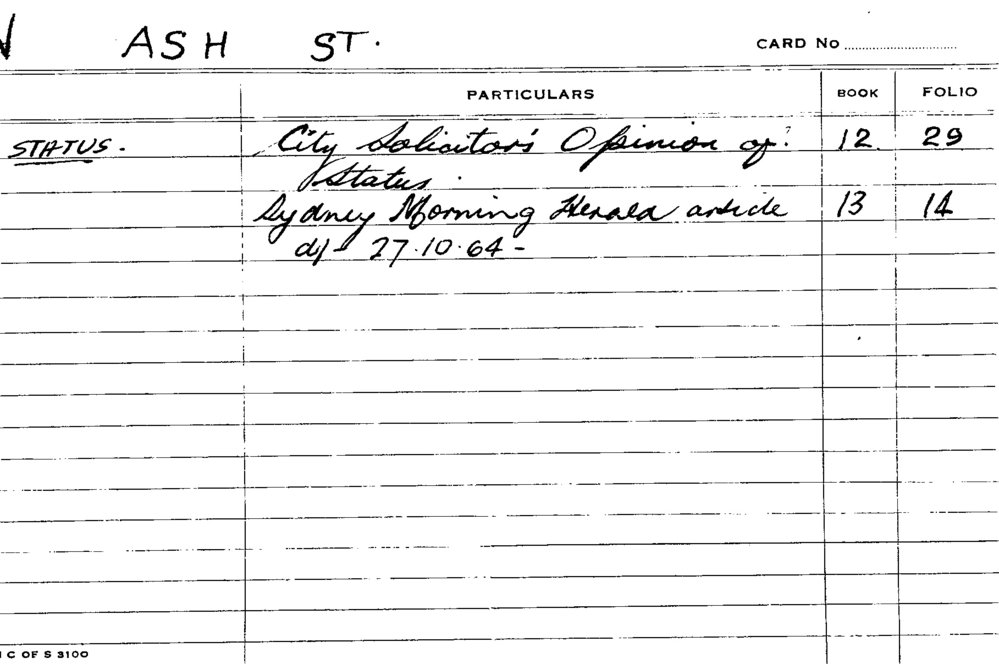 ASH ST.
CARD No
PARTICULARS BOOK FOLIO
STATUS. City Solicitor's Opinion of 12 29
Status.
Sydney Morning Herald article 13 14
d/- 27.10.64 -
C OF S 3100